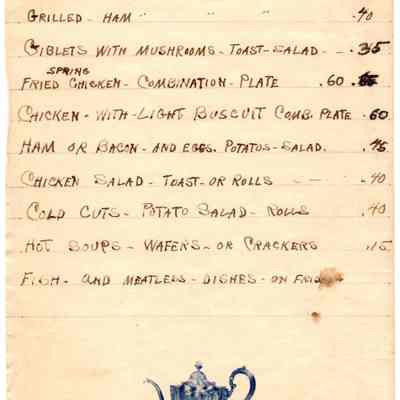 GRILLED - HAM " " " .40
GIBLETS WITH MUSHROOMS - TOAST - SALAD - - .35
SPRING
FRIED CHICKEN - COMBINATION - PLATE .60
CHICKEN - WITH - LIGHT BUSCUIT COMB. PLATE .60
HAM OR BACON - AND EGGS. POTATOS - SALAD. .45
CHICKEN SALAD - TOAST - OR ROLLS - - .40
COLD CUTS - POTATO SALAD - ROLLS .40
HOT SOUPS - WAFERS - OR CRACKERS .15
FISH - AND MEATLESS - DISHES - ON